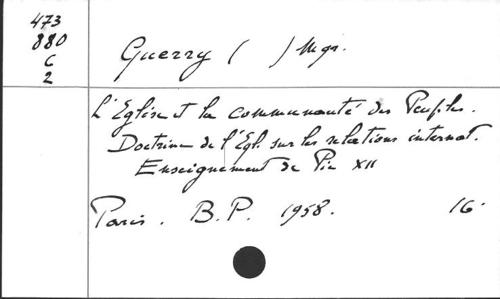 473
880
C
2
Guerry ( ) Mgr.
L'Eglise et la communauté des Peuples.
Doctrine de l'Egl. sur les relations internat.
Enseignement de Pie XII
Paris. B.P. 1958. 16°